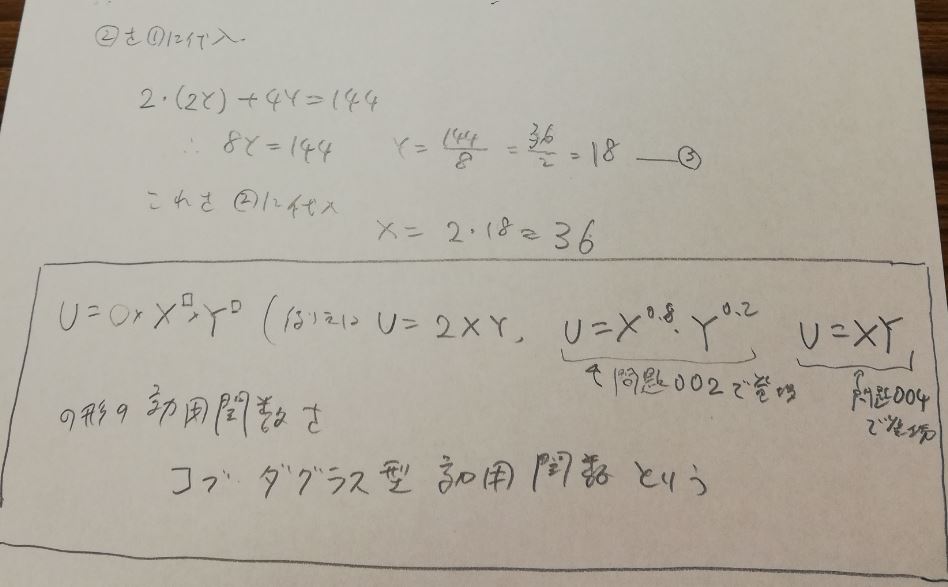 ②を①に代入.
2・(2Y)+4Y=144
∴ 8Y=144 Y=144/8=36/2=18 ―③
これを②に代入
X=2・18=36
U=○×X^□×Y^□ (例えば U=2XY, U=X^0.8・Y^0.2 U=XY,
↑問題002で登場 ↑問題004で登場
の形の効用関数を
コブ・ダグラス型 効用関数という